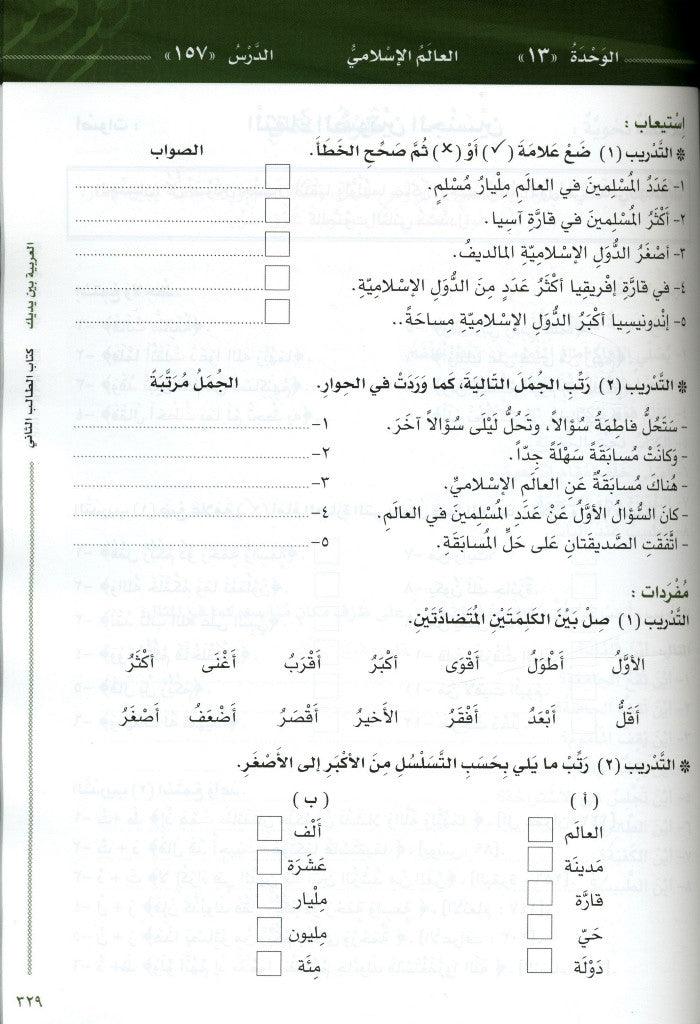 الوَحْدَةُ «١٣» العالَمُ الإسْلاميُّ الدَّرْسُ «١٥٧»
إسْتيعاب :
* التَّدْريب (١) ضَعْ عَلامَةَ (✓) أوْ (×) ثُمَّ صَحِّحِ الخَطَأَ. الصواب
١- عَدَدُ المُسْلِمينَ في العالَمِ مِلْيارُ مُسْلِمٍ.
٢- أكْثَرُ المُسْلِمينَ في قارَّةِ آسِيا.
٣- أصْغَرُ الدُّوَلِ الإسْلاميَّةِ المالديفُ.
٤- في قارَّةِ إفْريقِيا أكْثَرُ عَدَدٍ مِنَ الدُّوَلِ الإسْلاميَّةِ.
٥- إنْدونيسيا أكْبَرُ الدُّوَلِ الإسْلاميَّةِ مِساحَةً..
* التَّدْريب (٢) رَتِّبِ الجُمَلَ التالِيَةَ، كَما وَرَدَتْ في الحِوارِ. الجُمَلُ مُرَتَّبَةً
- سَتَحُلُّ فاطِمَةُ سُؤالاً، وتَحُلُّ لَيْلَى سُؤالاً آخَرَ. ١-
- وَكانَتْ مُسابَقَةً سَهْلَةً جِدّاً. ٢-
- هُناكَ مُسابَقَةٌ عَنِ العالَمِ الإسْلاميِّ. ٣-
- كانَ السُّؤالُ الأوَّلُ عَنْ عَدَدِ المُسْلِمينَ في العالَمِ. ٤-
- اتَّفَقَتِ الصَّديقَتانِ عَلى حَلِّ المُسابَقَةِ. ٥-
مُفْرَدات :
التَّدْريب (١) صِلْ بَيْنَ الكَلِمَتَيْنِ المُتَضادَّتَيْنِ.
الأوَّلُ أَطْوَلُ أَقْوَى أَكْبَرُ أَقْرَبُ أَغْنَى أَكْثَرُ
أَقَلُّ أَبْعَدُ أَفْقَرُ الأخيرُ أَقْصَرُ أَضْعَفُ أَصْغَرُ
* التَّدْريب (٢) رَتِّبْ ما يَلي بِحَسَبِ التَّسَلْسُلِ مِنَ الأكْبَرِ إلى الأصْغَرِ.
( أ ) ( ب )
العالَم أَلْف
مَدينَة عَشَرَة
قارَّة مِلْيار
حَيّ مِلْيون
دَوْلَة مِئَة
العربية بين يديك كتاب الطالب الثاني
٣٢٩